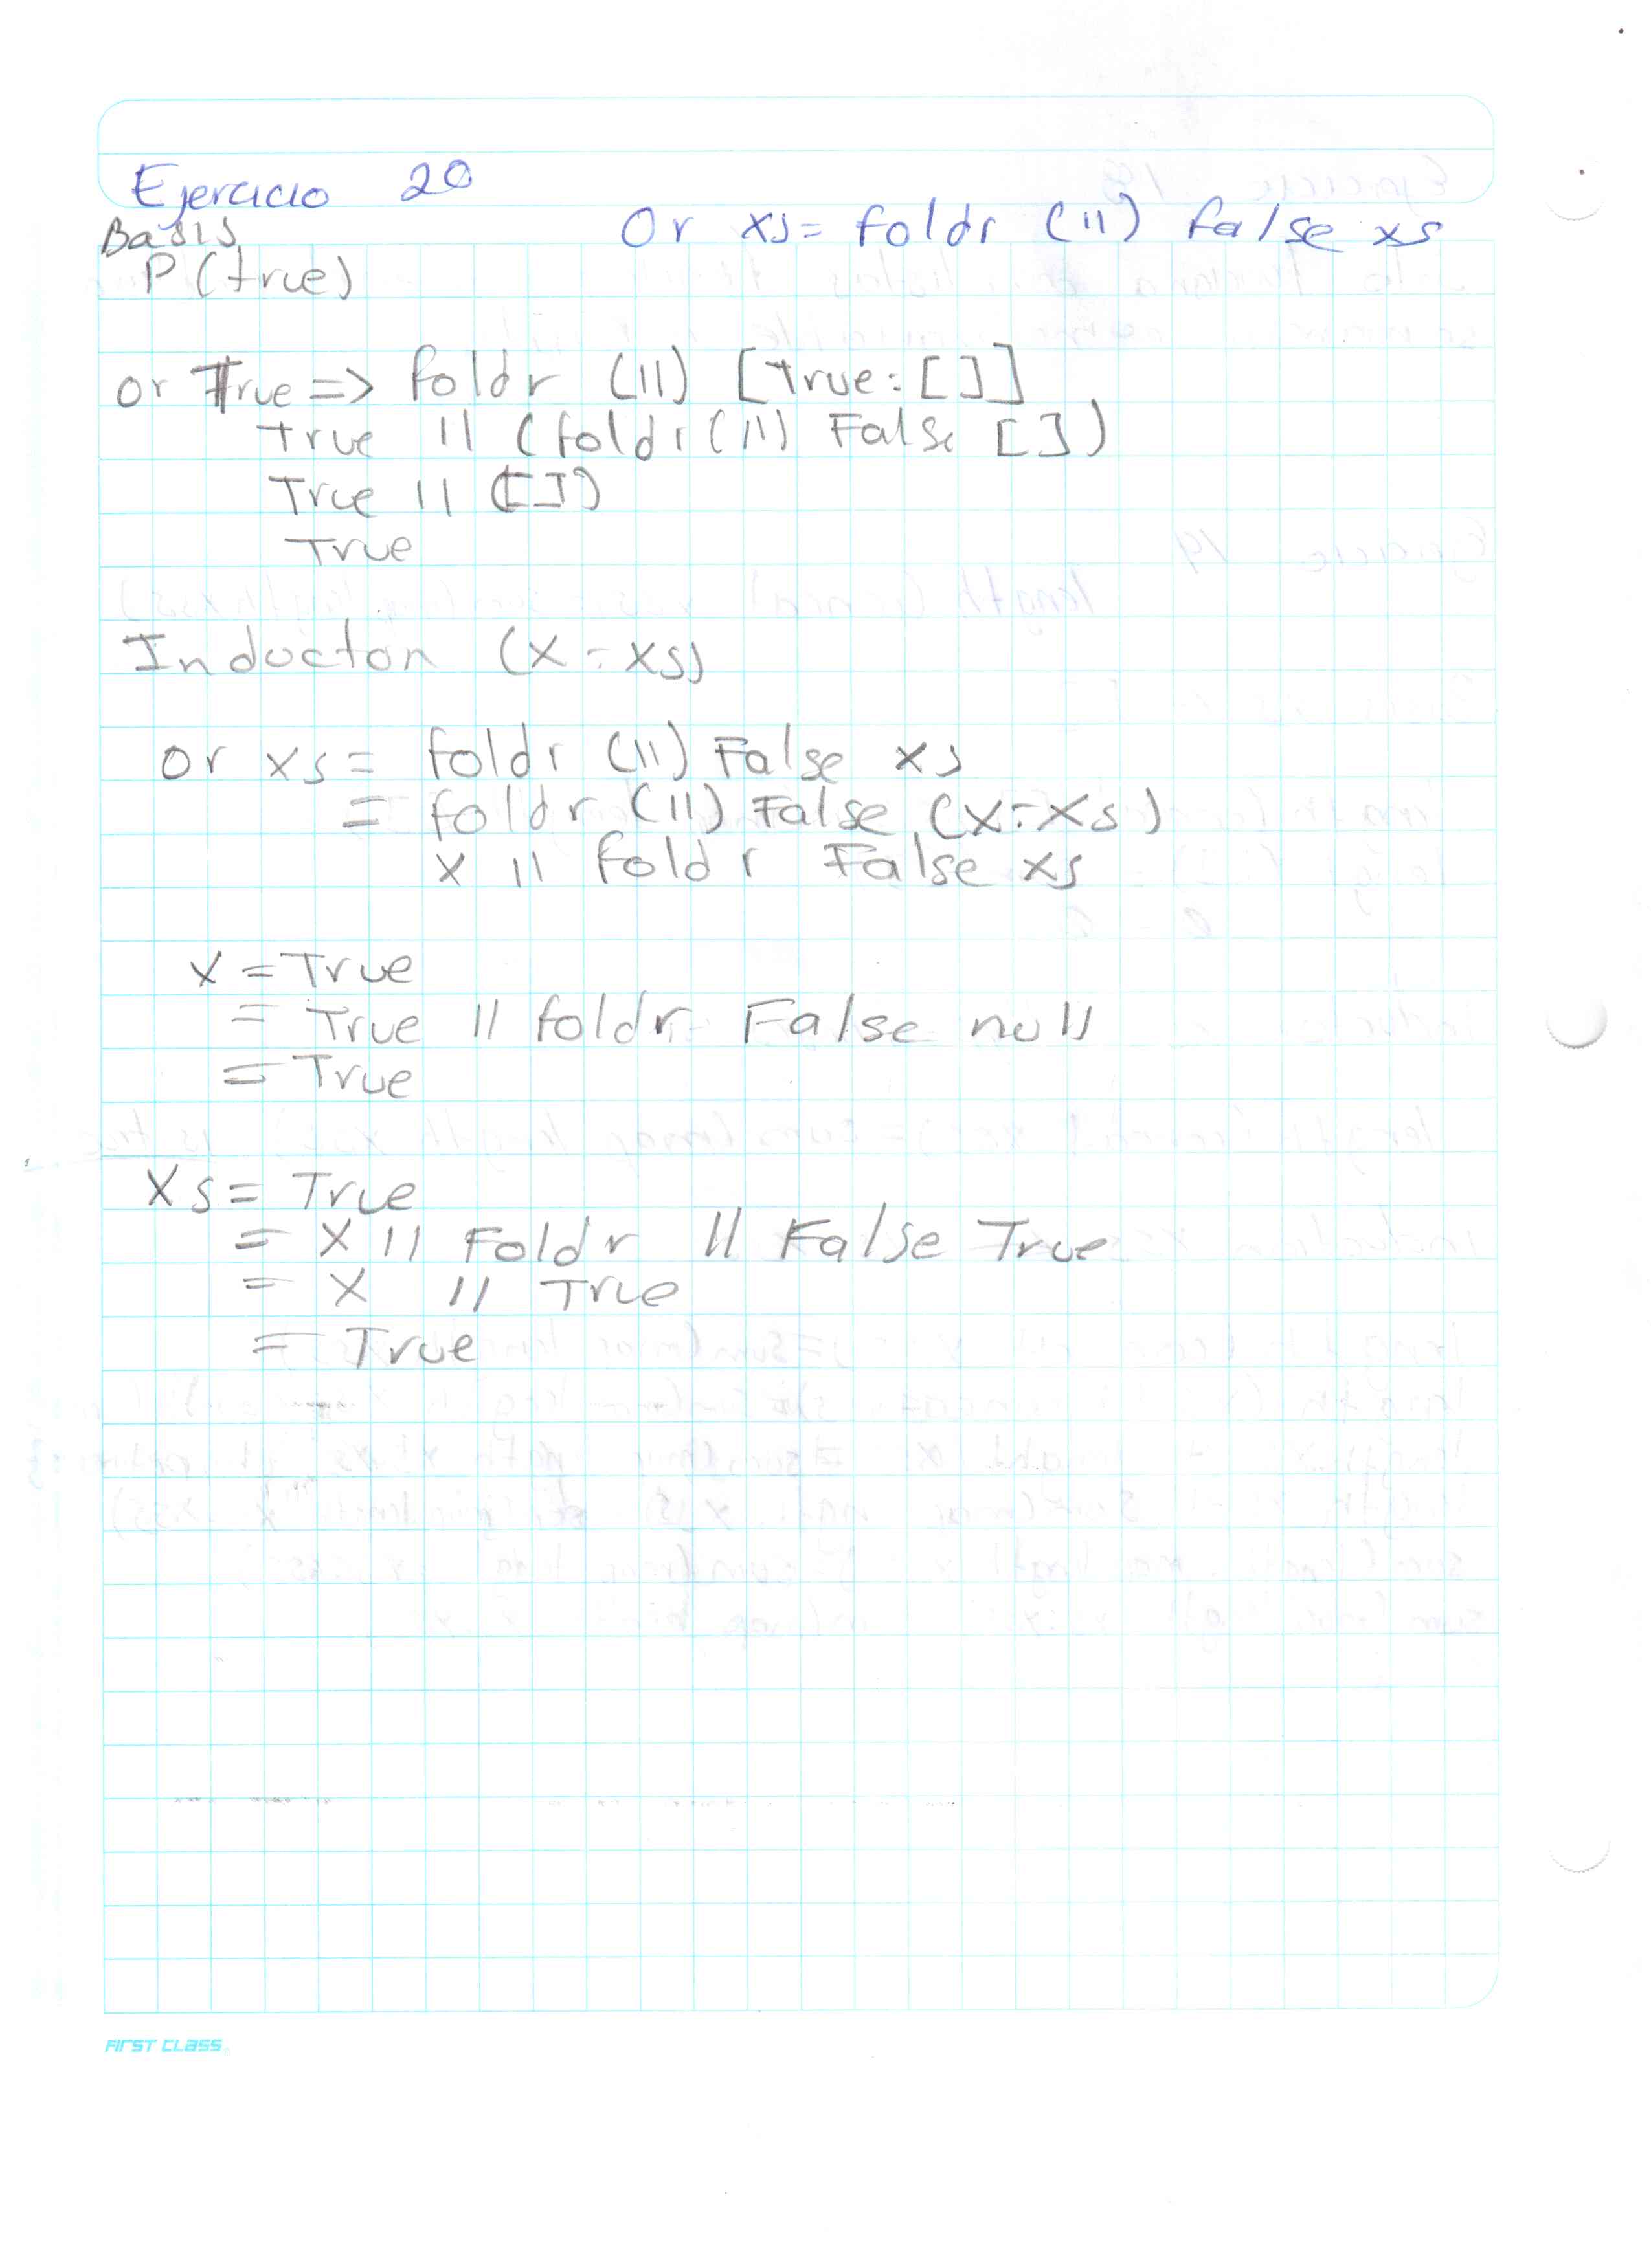 Ejercicio 20
Or xs= foldr (||) false xs
Basis
P(true)
or True => foldr (||) [true:[]]
true || (foldr(||) False [])
True || ([])
True
Inducton (x:xs)
or xs= foldr (||) False xs
= foldr (||) False (x:xs)
x || foldr False xs
x = True
= True || foldr False null
= True
xs= True
= x || Foldr || False True
= x || True
= True
FIRST CLASS